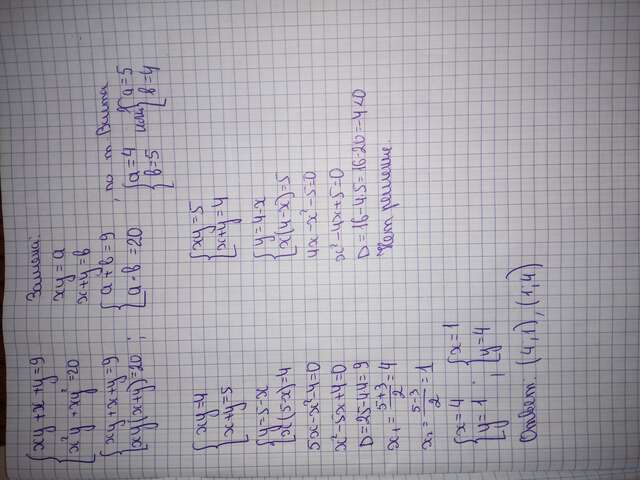 {xy+x+y=9
{x²y+xy²=20
{xy+x+y=9
{xy(x+y)=20 ;
Замена:
xy=a
x+y=b
{a+b=9
{a·b=20 , по т Виета
{a=4
{b=5 или {a=5
{b=4
{xy=4
{x+y=5
{y=5-x
{x(5-x)=4
5x-x²-4=0
x²-5x+4=0
D=25-4·4=9
x₁=(5+3)/2=4
x₂=(5-3)/2=1
{x=4
{y=1 ; {x=1
{y=4
{xy=5
{x+y=4
{y=4-x
{x(4-x)=5
4x-x²-5=0
x²-4x+5=0
D=16-4·5=16-20=-4<0
Нет решение
Ответ: (4,1),(1,4)